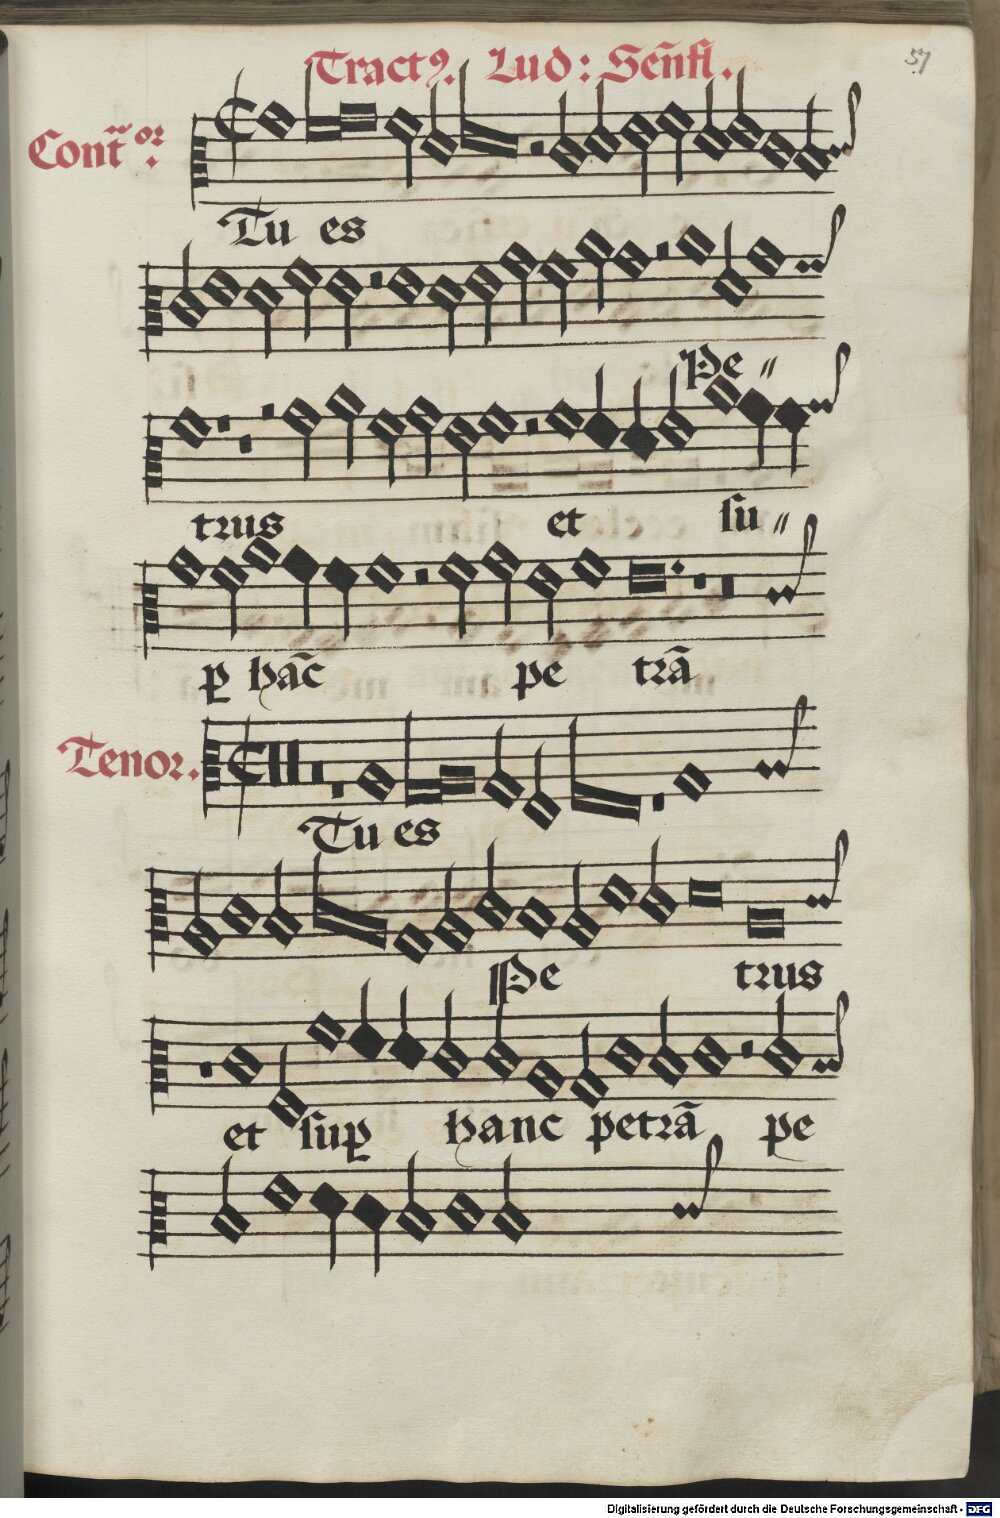 Tractꝰ. Lud: Sēnfl.
57
Contr̄or.
Tu es
Pe〃
trus et su〃
ꝑ hāc pe trā
Tenor.
Tu es
Pe trus
et suꝑ hanc petrā pe
Digitalisierung gefördert durch die Deutsche Forschungsgemeinschaft - DFG